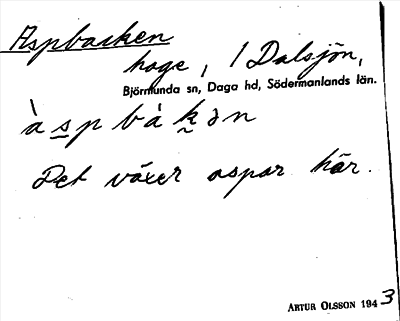 Aspbacken
hage, i Dalsjön,
Björnlunda sn, Daga hd, Södermanlands län.
àspbàkən
Det växer aspar här.
ARTUR OLSSON 1943